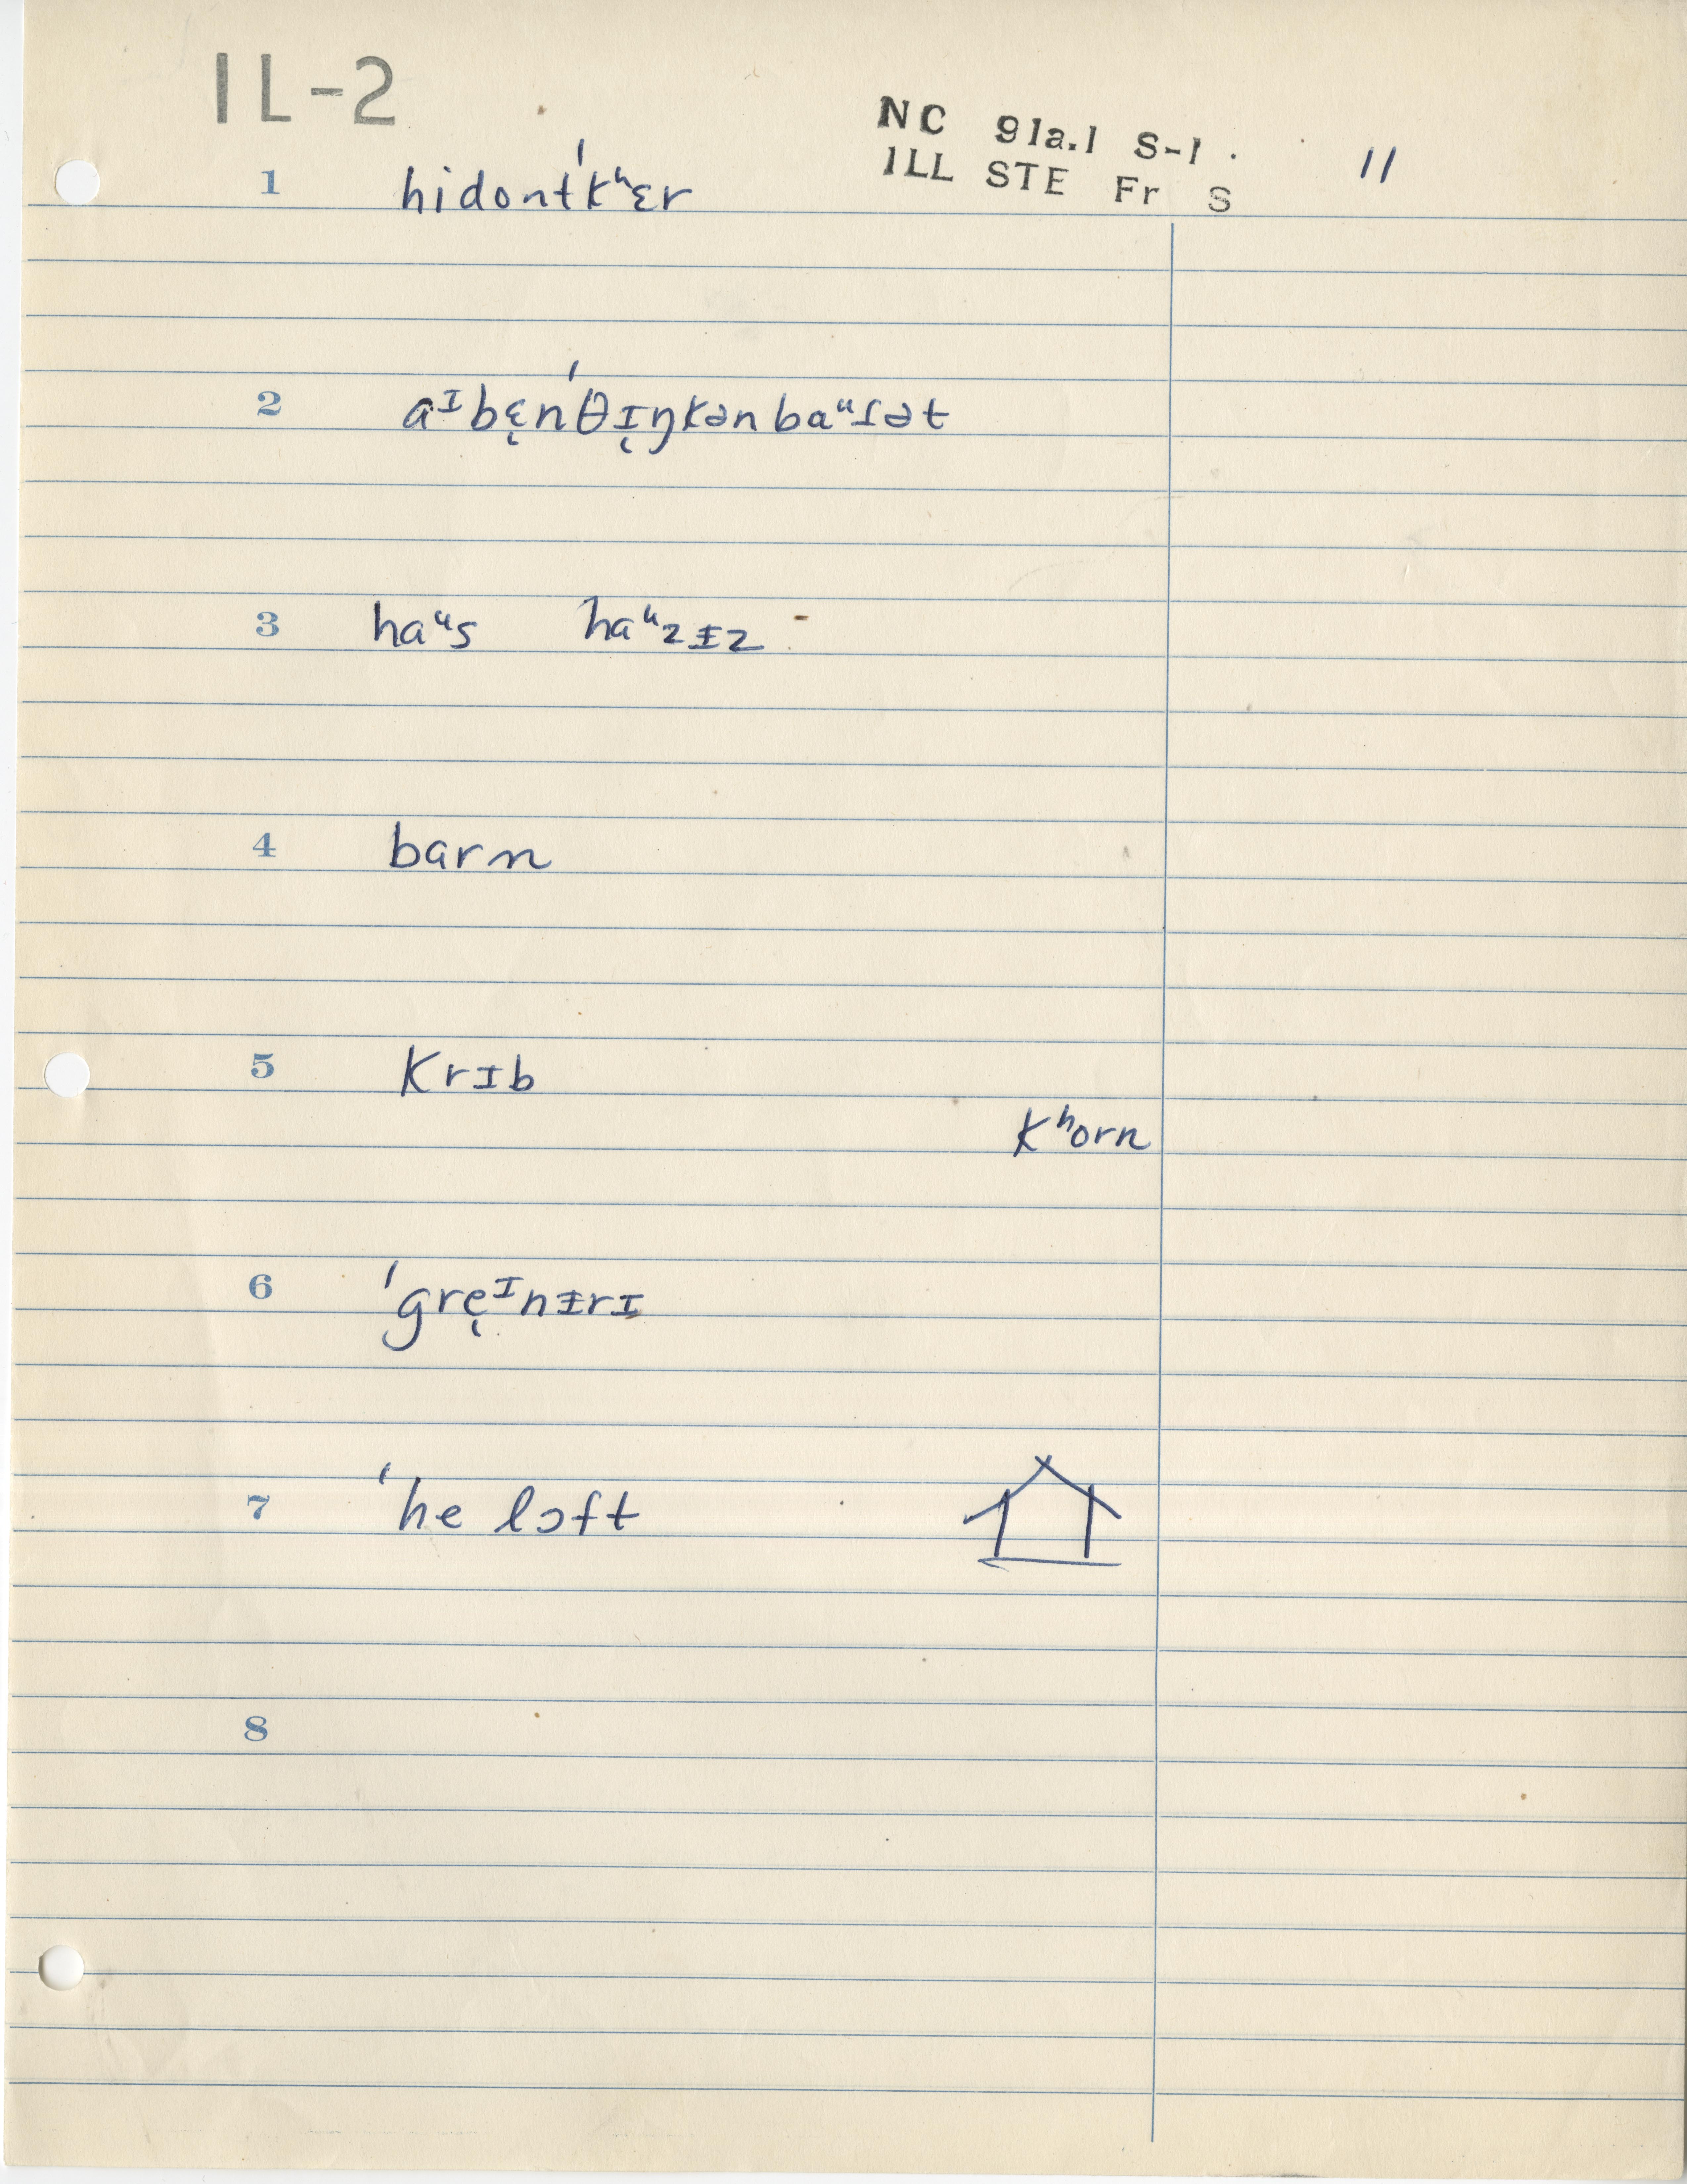 IL-2
NC 91a.1 S-1.
ILL STE Fr S
11
1 hidont'kʰɛr
2 aᶦbɛ̨n'θɪ̨ŋkənbaᵘɾət
3 haᵘs haᵘzᵻz
4 barn
5 krɪb
kʰorn
6 'grę ᶦnᵻrɪ
7 'he lɔft
8